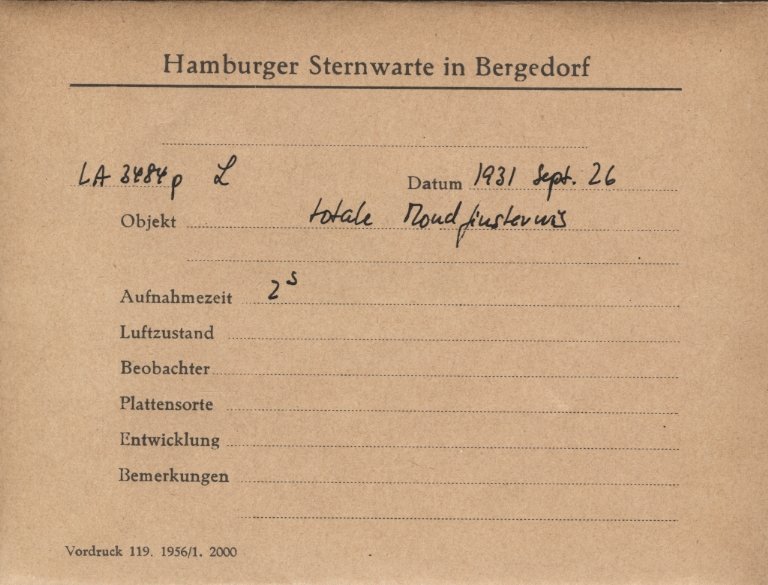 Hamburger Sternwarte in Bergedorf
LA 3484p L Datum 1931 Sept. 26
Objekt totale Mondfinsternis
Aufnahmezeit 2s
Luftzustand
Beobachter
Plattensorte
Entwicklung
Bemerkungen
Vordruck 119. 1956/1. 2000